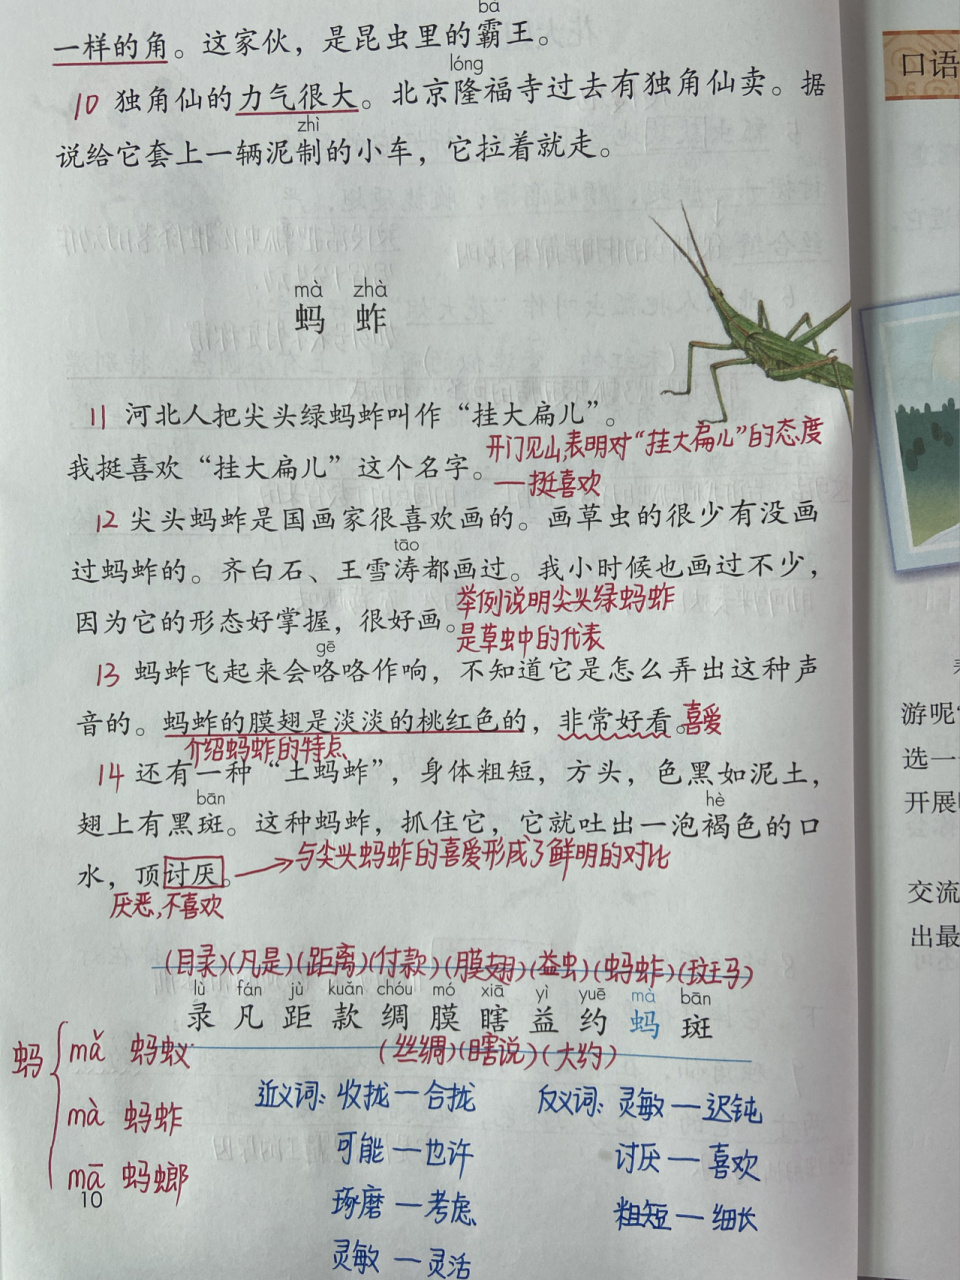 bà
一样的角。这家伙，是昆虫里的霸王。
lóng
10 独角仙的力气很大。北京隆福寺过去有独角仙卖。据
zhì
说给它套上一辆泥制的小车，它拉着就走。
mà zhà
蚂 蚱
11 河北人把尖头绿蚂蚱叫作“挂大扁儿”。
开门见山,表明对“挂大扁儿”的态度
我挺喜欢“挂大扁儿”这个名字。
—挺喜欢
12 尖头蚂蚱是国画家很喜欢画的。画草虫的很少有没画
tāo
过蚂蚱的。齐白石、王雪涛都画过。我小时候也画过不少，
举例说明尖头绿蚂蚱
因为它的形态好掌握，很好画。
是草虫中的代表
gē
13 蚂蚱飞起来会咯咯作响，不知道它是怎么弄出这种声
音的。蚂蚱的膜翅是淡淡的桃红色的，非常好看。喜爱
介绍蚂蚱的特点
14 还有一种“土蚂蚱”，身体粗短，方头，色黑如泥土，
bān hè
翅上有黑斑。这种蚂蚱，抓住它，它就吐出一泡褐色的口
与尖头蚂蚱的喜爱形成了鲜明的对比
水，顶讨厌。
厌恶,不喜欢
(目录)(凡是)(距离)(付款)(膜翅)(益虫)(蚂蚱)(斑马)
lù fán jù kuǎn chóu mó xiā yì yuē mà bān
录 凡 距 款 绸 膜 瞎 益 约 蚂 斑
(丝绸)(瞎说)(大约)
蚂
mǎ 蚂蚁
mà 蚂蚱
mā 蚂螂
近义词: 收拢—合拢
可能—也许
琢磨—考虑
灵敏—灵活
反义词: 灵敏—迟钝
讨厌—喜欢
粗短—细长
10
口语
游呢
选一
开展
交流
出最